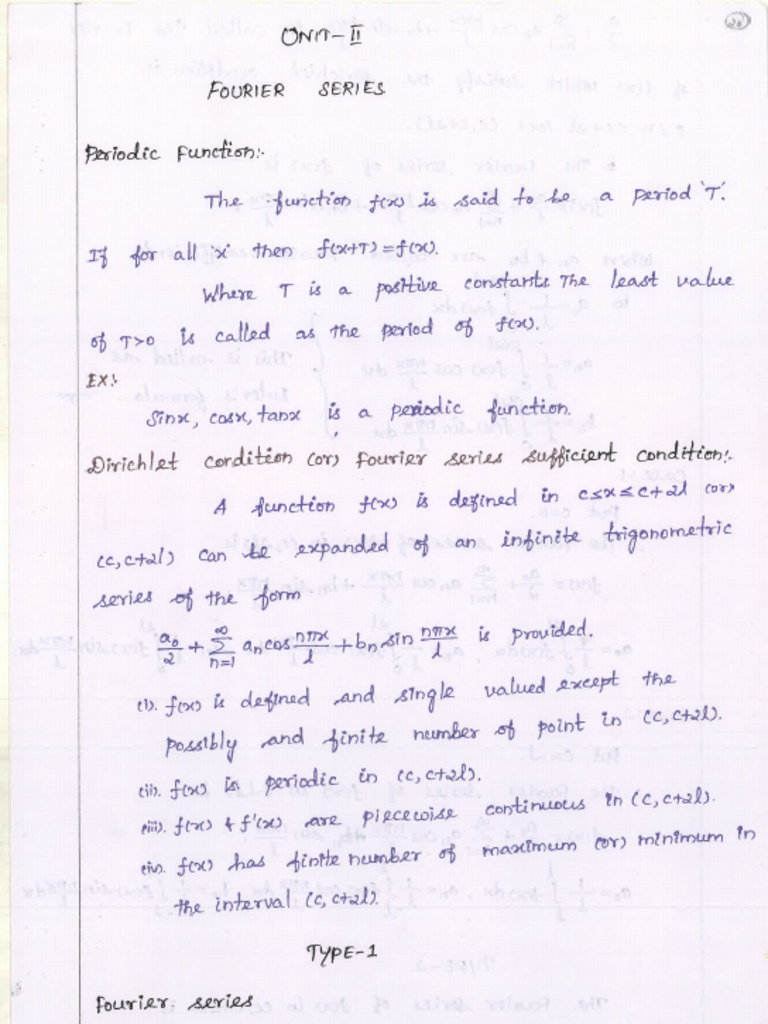 20
UNIT-II
FOURIER SERIES
Periodic Function:-
The function f(x) is said to be a period 'T'.
If for all 'x' then f(x+T)=f(x).
Where T is a positive constants The least value
of T>0 is called as the period of f(x).
EX:-
Sinx, cosx, tanx is a periodic function.
Dirichlet condition (or) Fourier series sufficient condition:-
A function f(x) is defined in c≤x≤c+2l (or)
(c,c+2l) can be expanded of an infinite trigonometric
series of the form
a₀/2 + ∞Σn=1 aₙcos nπx/l + bₙ sin nπx/l is provided.
(i). f(x) is defined and single valued except the
possibly and finite number of point in (c,c+2l).
(ii). f(x) is periodic in (c,c+2l).
(iii). f(x) & f'(x) are piecewise continuous in (c,c+2l).
(iv). f(x) has finite number of maximum (or) minimum in
the interval (c,c+2l).
TYPE-1
Fourier series